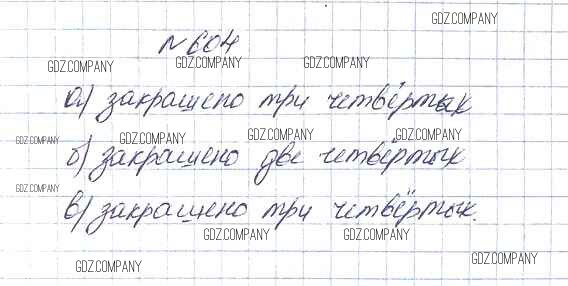 GDZ.COMPANY
№604
GDZ.COMPANY GDZ.COMPANY GDZ.COMPANY
а) закрашено три четвёртых
GDZ.COMPANY GDZ.COMPANY GDZ.COMPANY GDZ.COMPANY
б) закрашено две четвёртых
GDZ.COMPANY
в) закрашено три четвёртых.
GDZ.COMPANY GDZ.COMPANY
GDZ.COMPANY GDZ.COMPANY